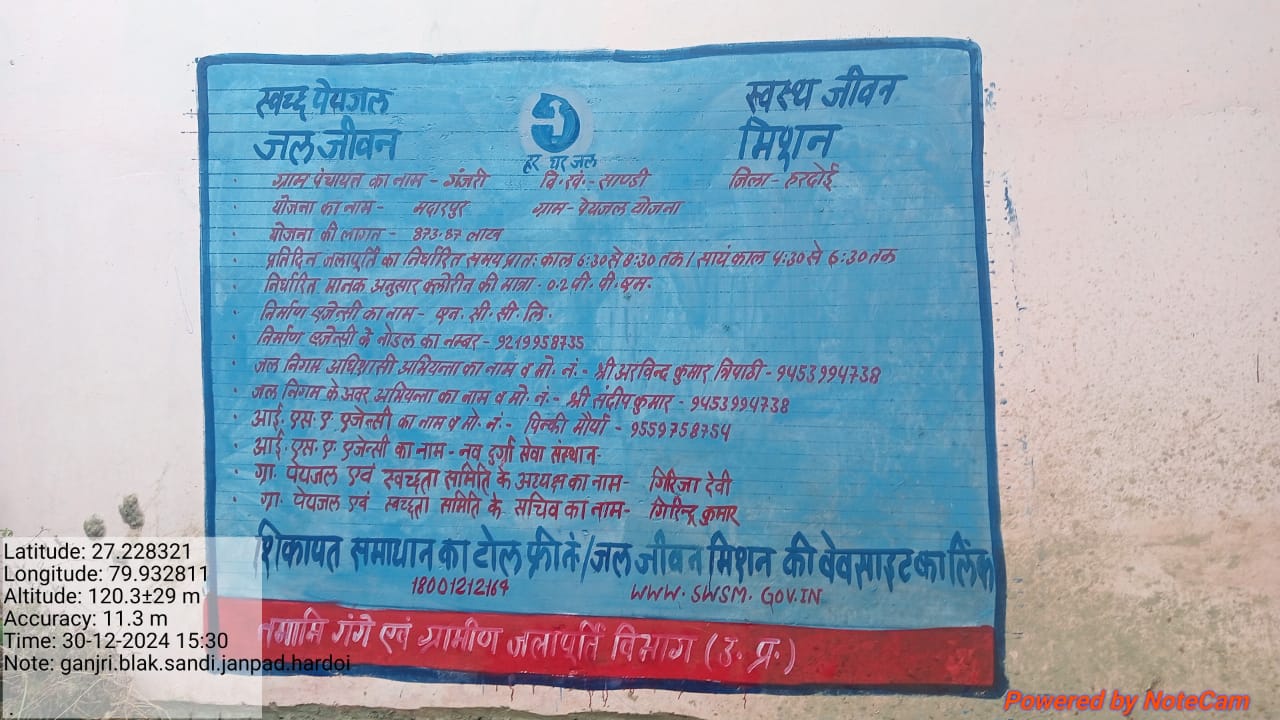 स्वच्छ पेयजल स्वस्थ जीवन
जल जीवन मिशन
हर घर जल
ग्राम पंचायत का नाम - गंजरी वि.खं.- साण्डी जिला - हरदोई
योजना का नाम - मदारपुर ग्राम - पेयजल योजना
योजना की लागत - 873.87 लाख
प्रतिदिन जलापूर्ति का निर्धारित समय प्रातः काल 6:30 से 8:30 तक / सायं काल 4:30 से 6:30 तक
निर्धारित मानक अनुसार क्लोरीन की मात्रा - 0.2 पी. पी. एम.
निर्माण एजेन्सी का नाम - एन. सी. सी. लि.
निर्माण एजेन्सी के नोडल का नम्बर - 9219958735
जल निगम अधिशासी अभियन्ता का नाम व मो. नं.- श्री अरविन्द कुमार त्रिपाठी - 9453994738
जल निगम के अवर अभियन्ता का नाम व मो. नं.- श्री संदीप कुमार - 9453994738
आई. एस. ए. एजेन्सी का नाम व मो. नं.- पिन्की मौर्या - 9559758754
आई. एस. ए. एजेन्सी का नाम - नव दुर्गा सेवा संस्थान
ग्रा. पेयजल एवं स्वच्छता समिति के अध्यक्ष का नाम - गिरिजा देवी
ग्रा. पेयजल एवं स्वच्छता समिति के सचिव का नाम - गिरिन्द्र कुमार
शिकायत समाधान का टोल फ्री नं/जल जीवन मिशन की वेवसाइट का लिंक
18001212164 WWW.SWSM.GOV.IN
नमामि गंगे एवं ग्रामीण जलापूर्ति विभाग (उ. प्र.)
Latitude: 27.228321
Longitude: 79.932811
Altitude: 120.3±29 m
Accuracy: 11.3 m
Time: 30-12-2024 15:30
Note: ganjri.blak.sandi.janpad.hardoi
Powered by NoteCam